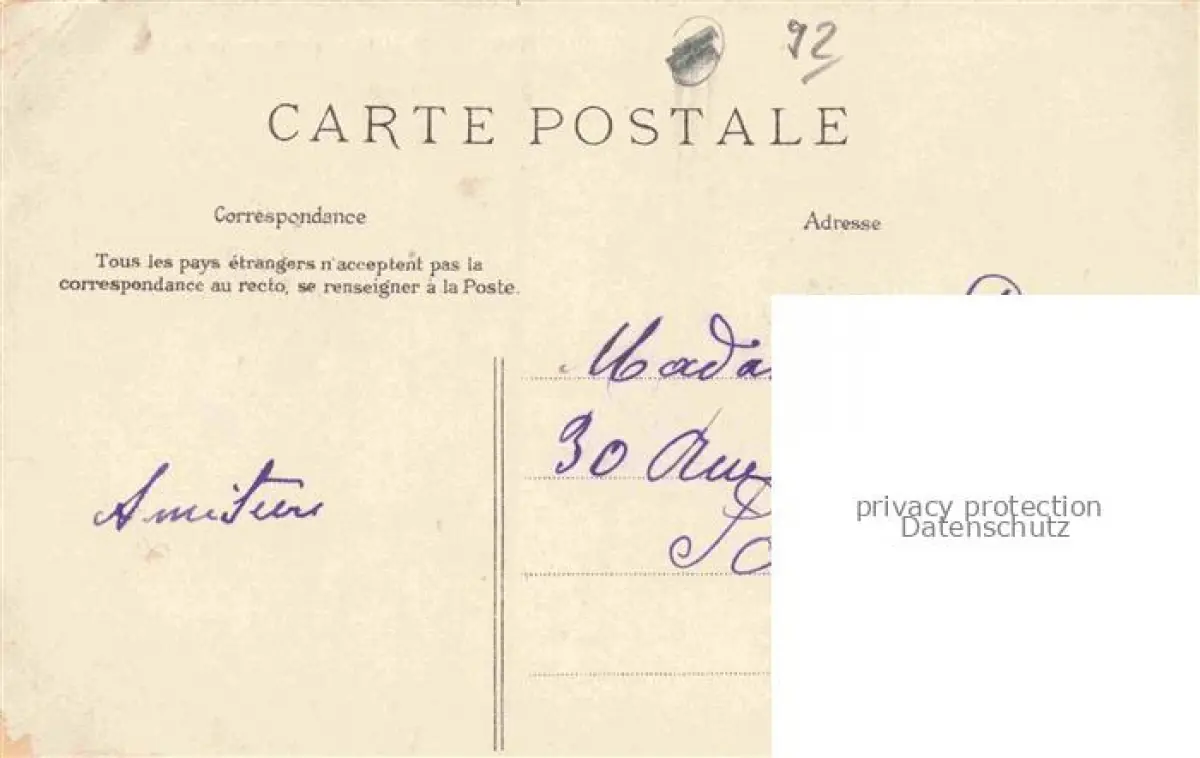 92
CARTE POSTALE
Correspondance
Adresse
Tous les pays étrangers n'acceptent pas la
correspondance au recto, se renseigner à la Poste.
30 Rue
privacy protection
Datenschutz